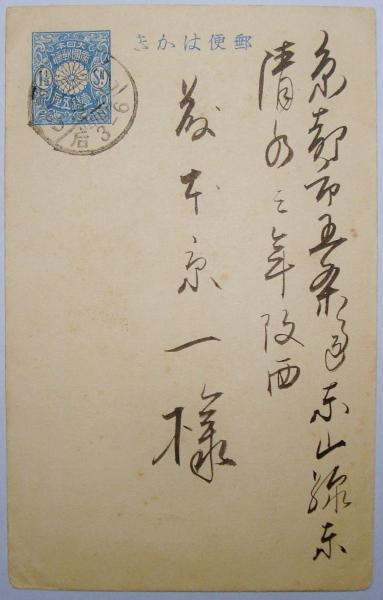 郵便はかき
大日本
帝國郵便
壹錢五厘
1½ Sn
后3-6
京都市五条通東山線東
清水三年阪西
本京一様